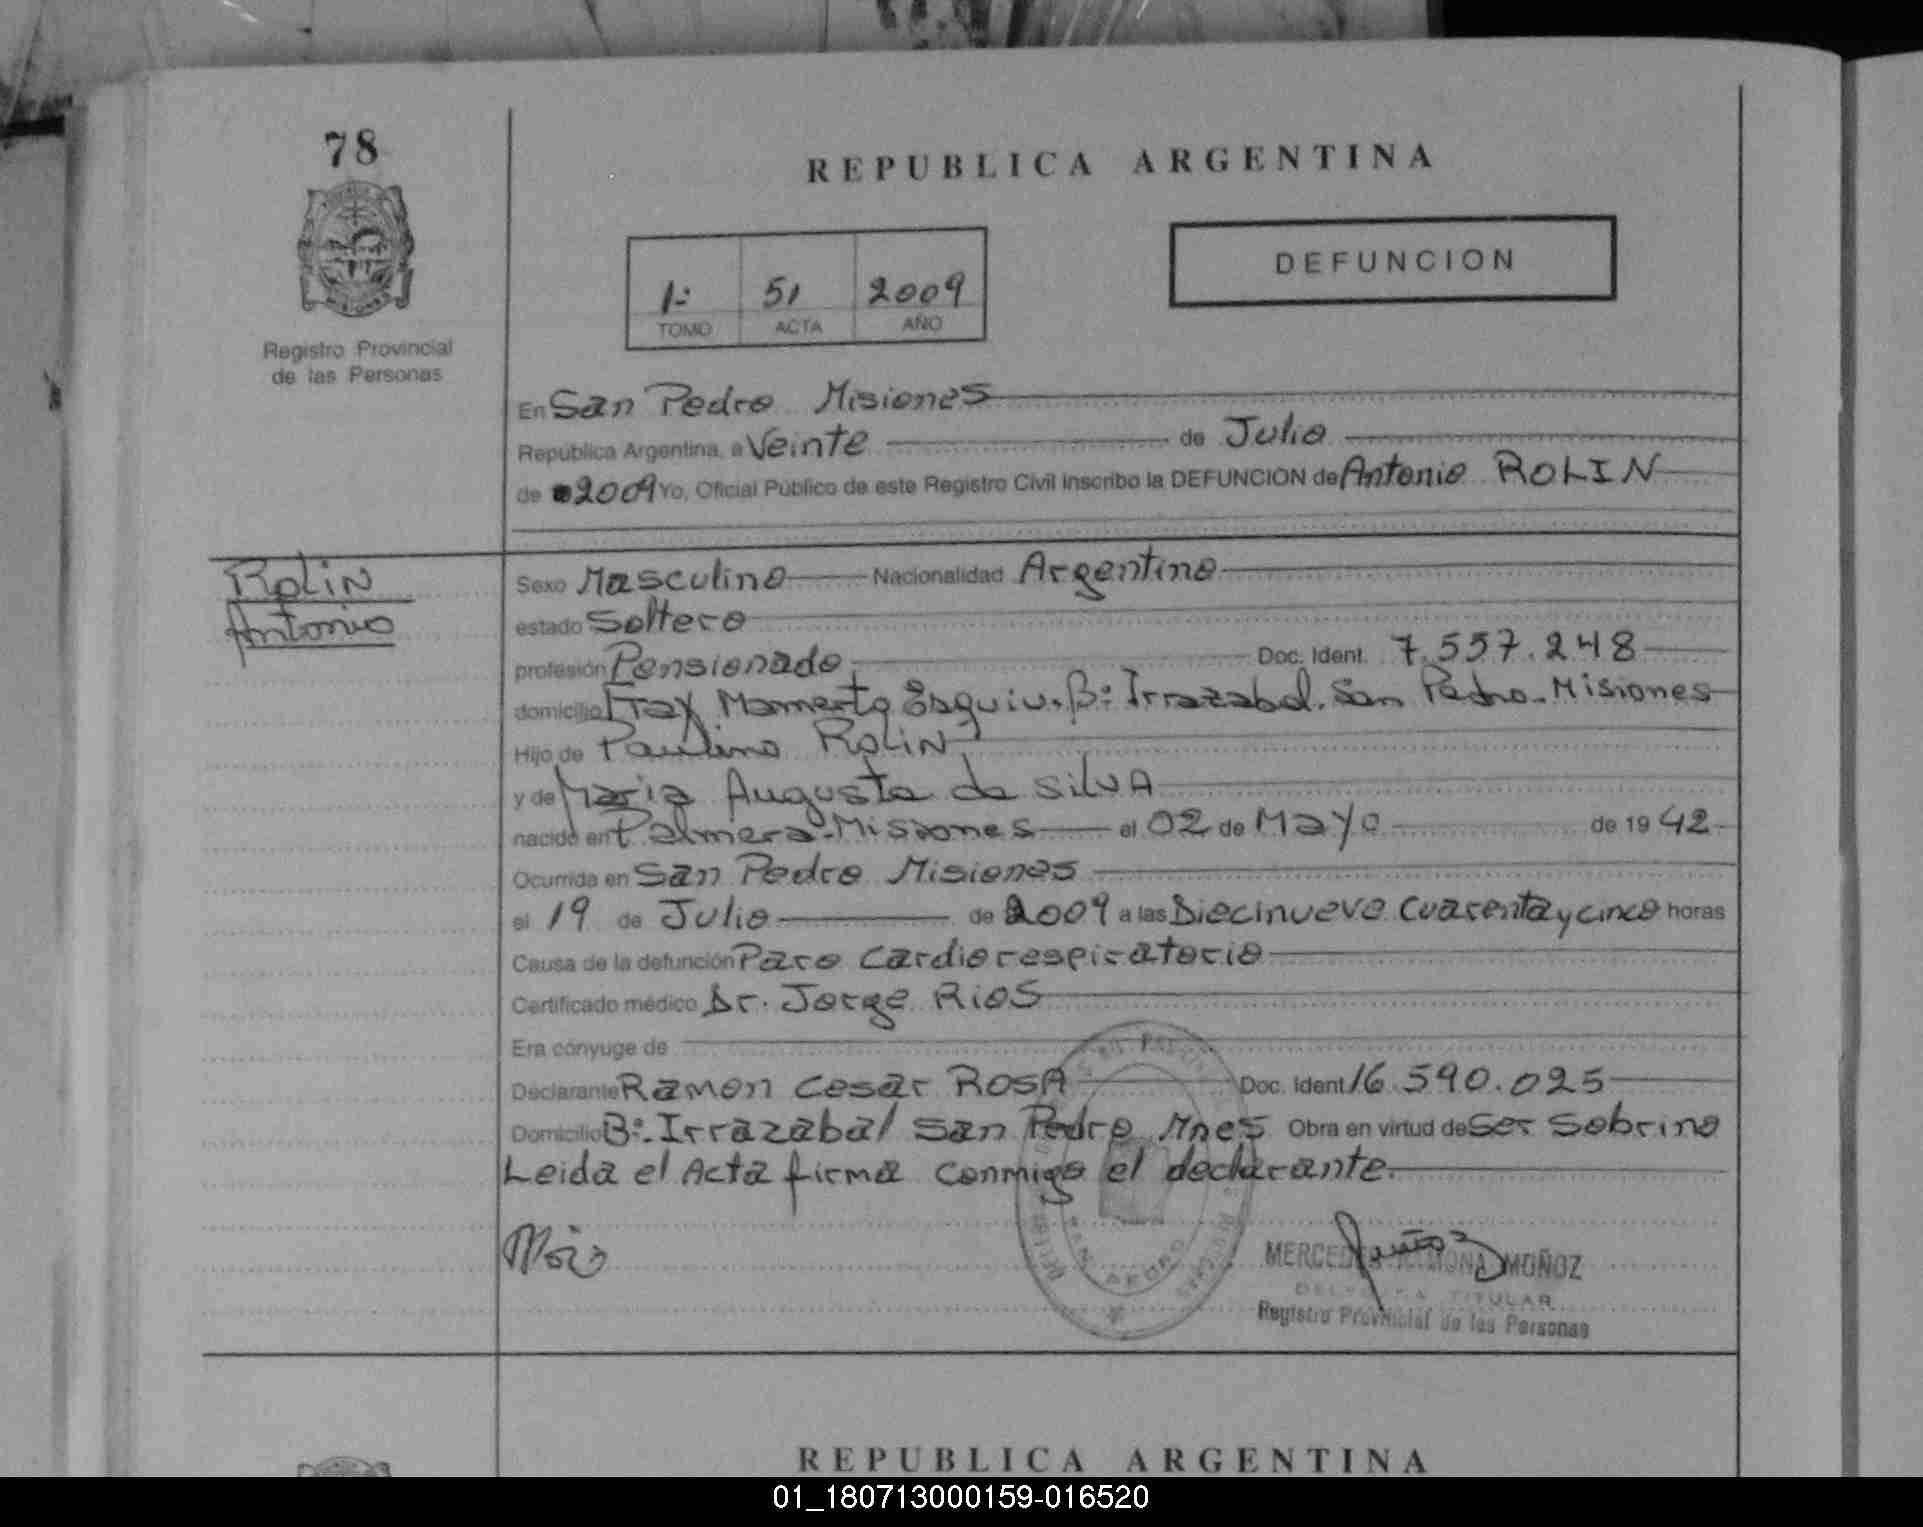 78
REPUBLICA ARGENTINA
1: 51 2009
TOMO ACTA AÑO
DEFUNCION
Registro Provincial
de las Personas
En San Pedro Misiones
República Argentina, a Veinte de Julio
de 2009 Yo, Oficial Público de este Registro Civil inscribo la DEFUNCION de Antonio ROLIN
Rolin
Antonio
Sexo Masculino Nacionalidad Argentino
estado Soltero
profesión Pensionado Doc. Ident. 7.557.248
domicilio Fray Mamerto Esquiu. B: Irrazabal. San Pedro. Misiones
Hijo de Paulino Rolin
y de Maria Augusta da SilvA
nacido en Palmera-Misiones el 02 de Mayo de 1942
Ocurrida en San Pedro Misiones
el 19 de Julio de 2009 a las Diecinueve Cuarenta y cinco horas
Causa de la defunción Paro Cardiorespiratorio
Certificado médico Dr. Jorge Rios
Era cónyuge de
Declarante Ramon Cesar ROSA Doc. Ident 16.590.025
Domicilio B:. Irrazabal San Pedro Mnes Obra en virtud de Ser Sobrino
Leida el Acta firma conmigo el declarante.
SAN PEDRO
MERCEDES RAMONA MUÑOZ
DELEGADA TITULAR
Registro Provincial de las Personas
REPUBLICA ARGENTINA
01_180713000159-016520